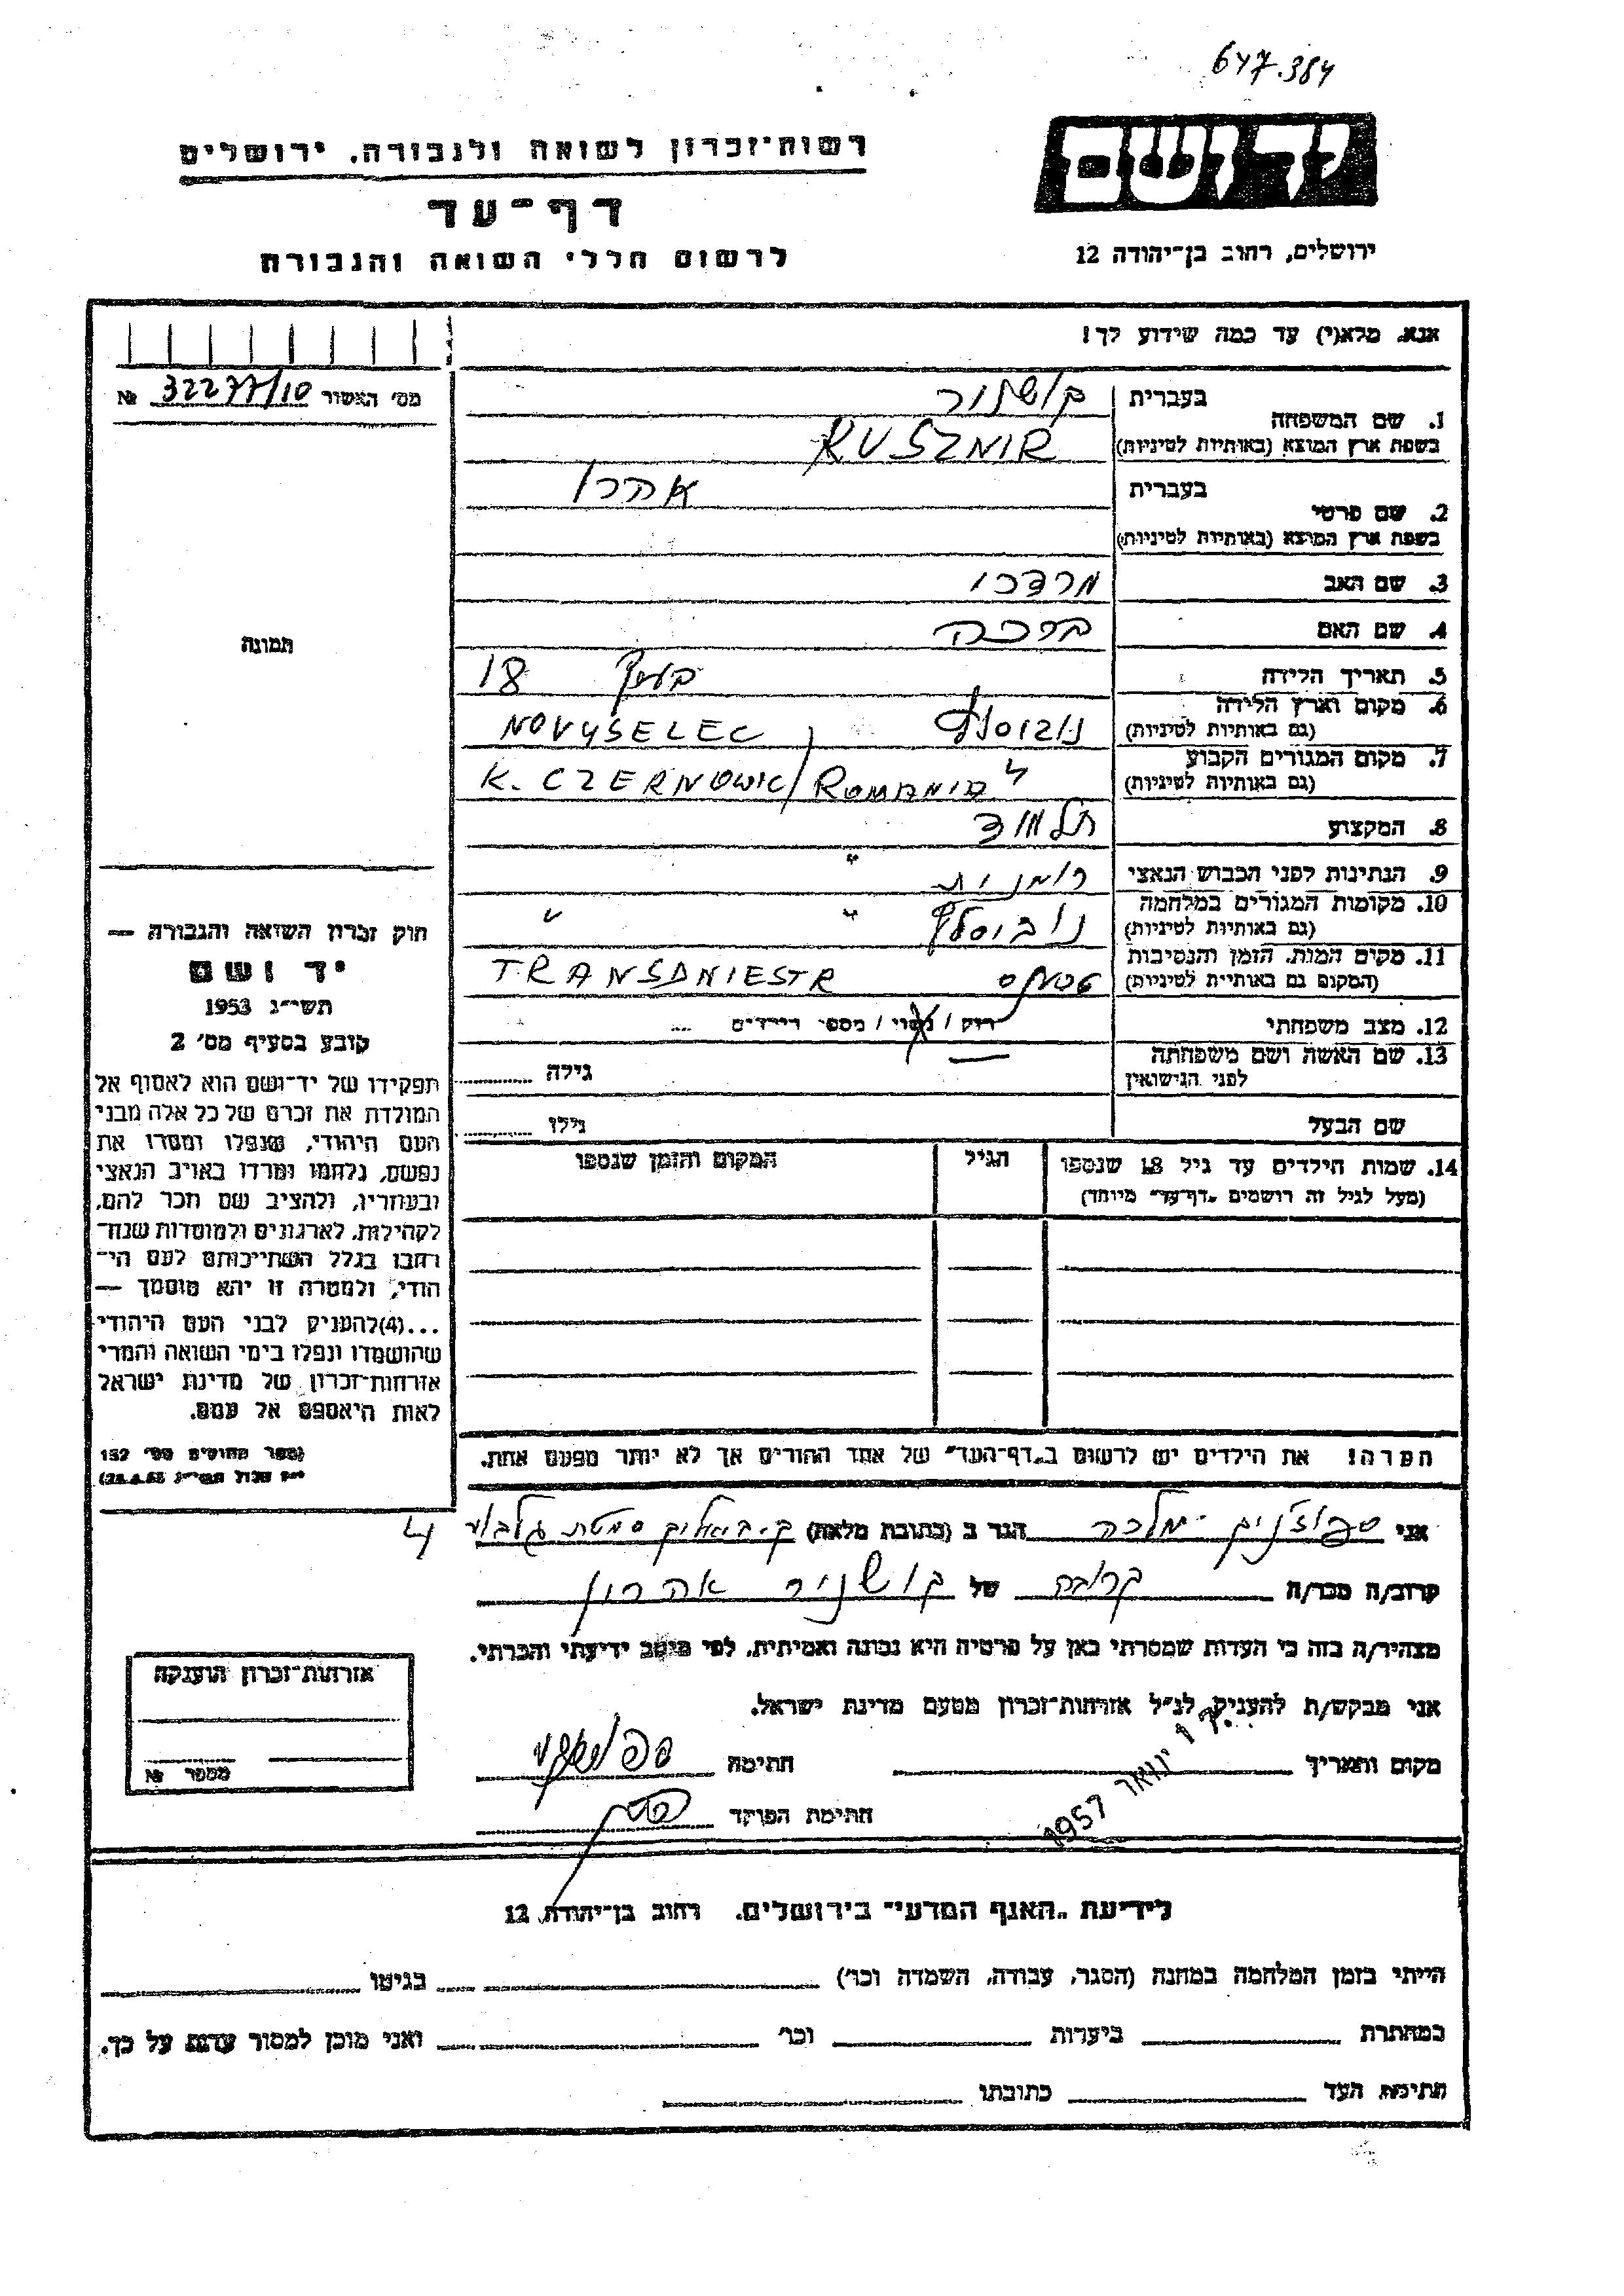 647.384
יד ושם
רשות־זכרון לשואה ולגבורה, ירושלים
דף־עד
לרשום חללי השואה והגבורה
ירושלים, רחוב בן־יהודה 12
אנא, מלא(י) עד כמה שידוע לך!
מס' האשור 32277/10 №
1. שם המשפחה
בעברית קושניר
בשפת ארץ המוצא (באותיות לטיניות) KUSZNIR
2. שם פרטי
בעברית אהרן
בשפת ארץ המוצא (באותיות לטיניות)
3. שם האב מרדכי
4. שם האם
5. תאריך הלידה 18
6. מקום וארץ הלידה
(גם באותיות לטיניות) NOVYSELEC
7. מקום המגורים הקבוע
(גם באותיות לטיניות) K. CZERNOWIC / ROMANIA
8. המקצוע תלמיד
9. הנתינות לפני הכבוש הנאצי רומנית
10. מקומות המגורים במלחמה
(גם באותיות לטיניות) " "
11. מקום המות, הזמן והנסיבות
(המקום גם באותיות לטיניות) TRANSDNIESTR
12. מצב משפחתי רווק / נשוי / מספר הילדים ...
13. שם האשה ושם משפחתה
לפני הנישואין — גילה
שם הבעל גילו
14. שמות הילדים עד גיל 18 שנספו
(מעל לגיל זה רושמים "דף־עד" מיוחד)
הגיל
המקום והזמן שנספו
הערה! את הילדים יש לרשום ב"דף־העד" של אחד ההורים אך לא יותר מפעם אחת.
תמונה
חוק זכרון השואה והגבורה —
יד ושם
תשי"ג 1953
קובע בסעיף מס' 2
תפקידו של יד־ושם הוא לאסוף אל
המולדת את זכרם של כל אלה מבני
העם היהודי, שנפלו ומסרו את
נפשם, נלחמו ומרדו באויב הנאצי
ובעוזריו, ולהציב שם וזכר להם,
לקהילות, לארגונים ולמוסדות שנח־
רבו בגלל השתייכותם לעם הי־
הודי, ולמטרה זו יהא מוסמך —
...(4)להעניק לבני העם היהודי
שהושמדו ונפלו בימי השואה והמרי
אזרחות־זכרון של מדינת ישראל
לאות היאספם אל עמם.
(ספר החוקים מס' 132
אני מלכה הגר ב (כתובת מלאה)
קרוב/ה מכר/ה קרובה של קושניר אהרון
מצהיר/ה בזה כי העדות שמסרתי כאן על פרטיה היא נכונה ואמיתית, לפי מיטב ידיעתי והכרתי.
אני מבקש/ת להעניק לנ"ל אזרחות־זכרון מטעם מדינת ישראל.
מקום ותאריך ינואר 1957 חתימה
חתימת הפוקד
אזרחות־זכרון הוענקה
מספר №
לידיעת "האגף המדעי" בירושלים, רחוב בן־יהודה 12
הייתי בזמן המלחמה במחנה (הסגר, עבודה, השמדה וכו') בגיטו
במחתרת ביערות וכו' ואני מוכן למסור עדות על כך.
חתימת העד כתובתו